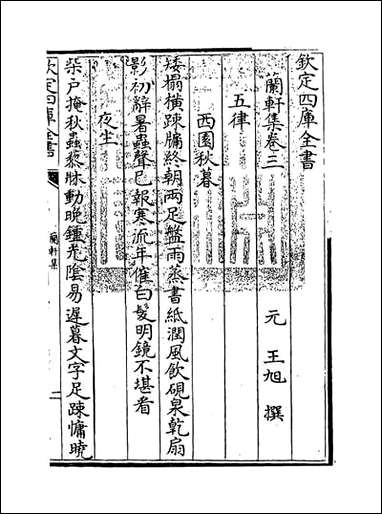 欽定四庫全書
蘭軒集卷三
元 王旭 撰
五律
西園秋暮
矮榻橫疎牖終朝兩足盤雨蒸書紙潤風飲硯泉乾扇
影初辭暑蟲聲已報寒流年催白髮明鏡不堪看
夜坐
柴户掩秋蟲藜牀動晚鍾光陰易遲暮文字足疎慵曉
欽定四庫全書
蘭軒集